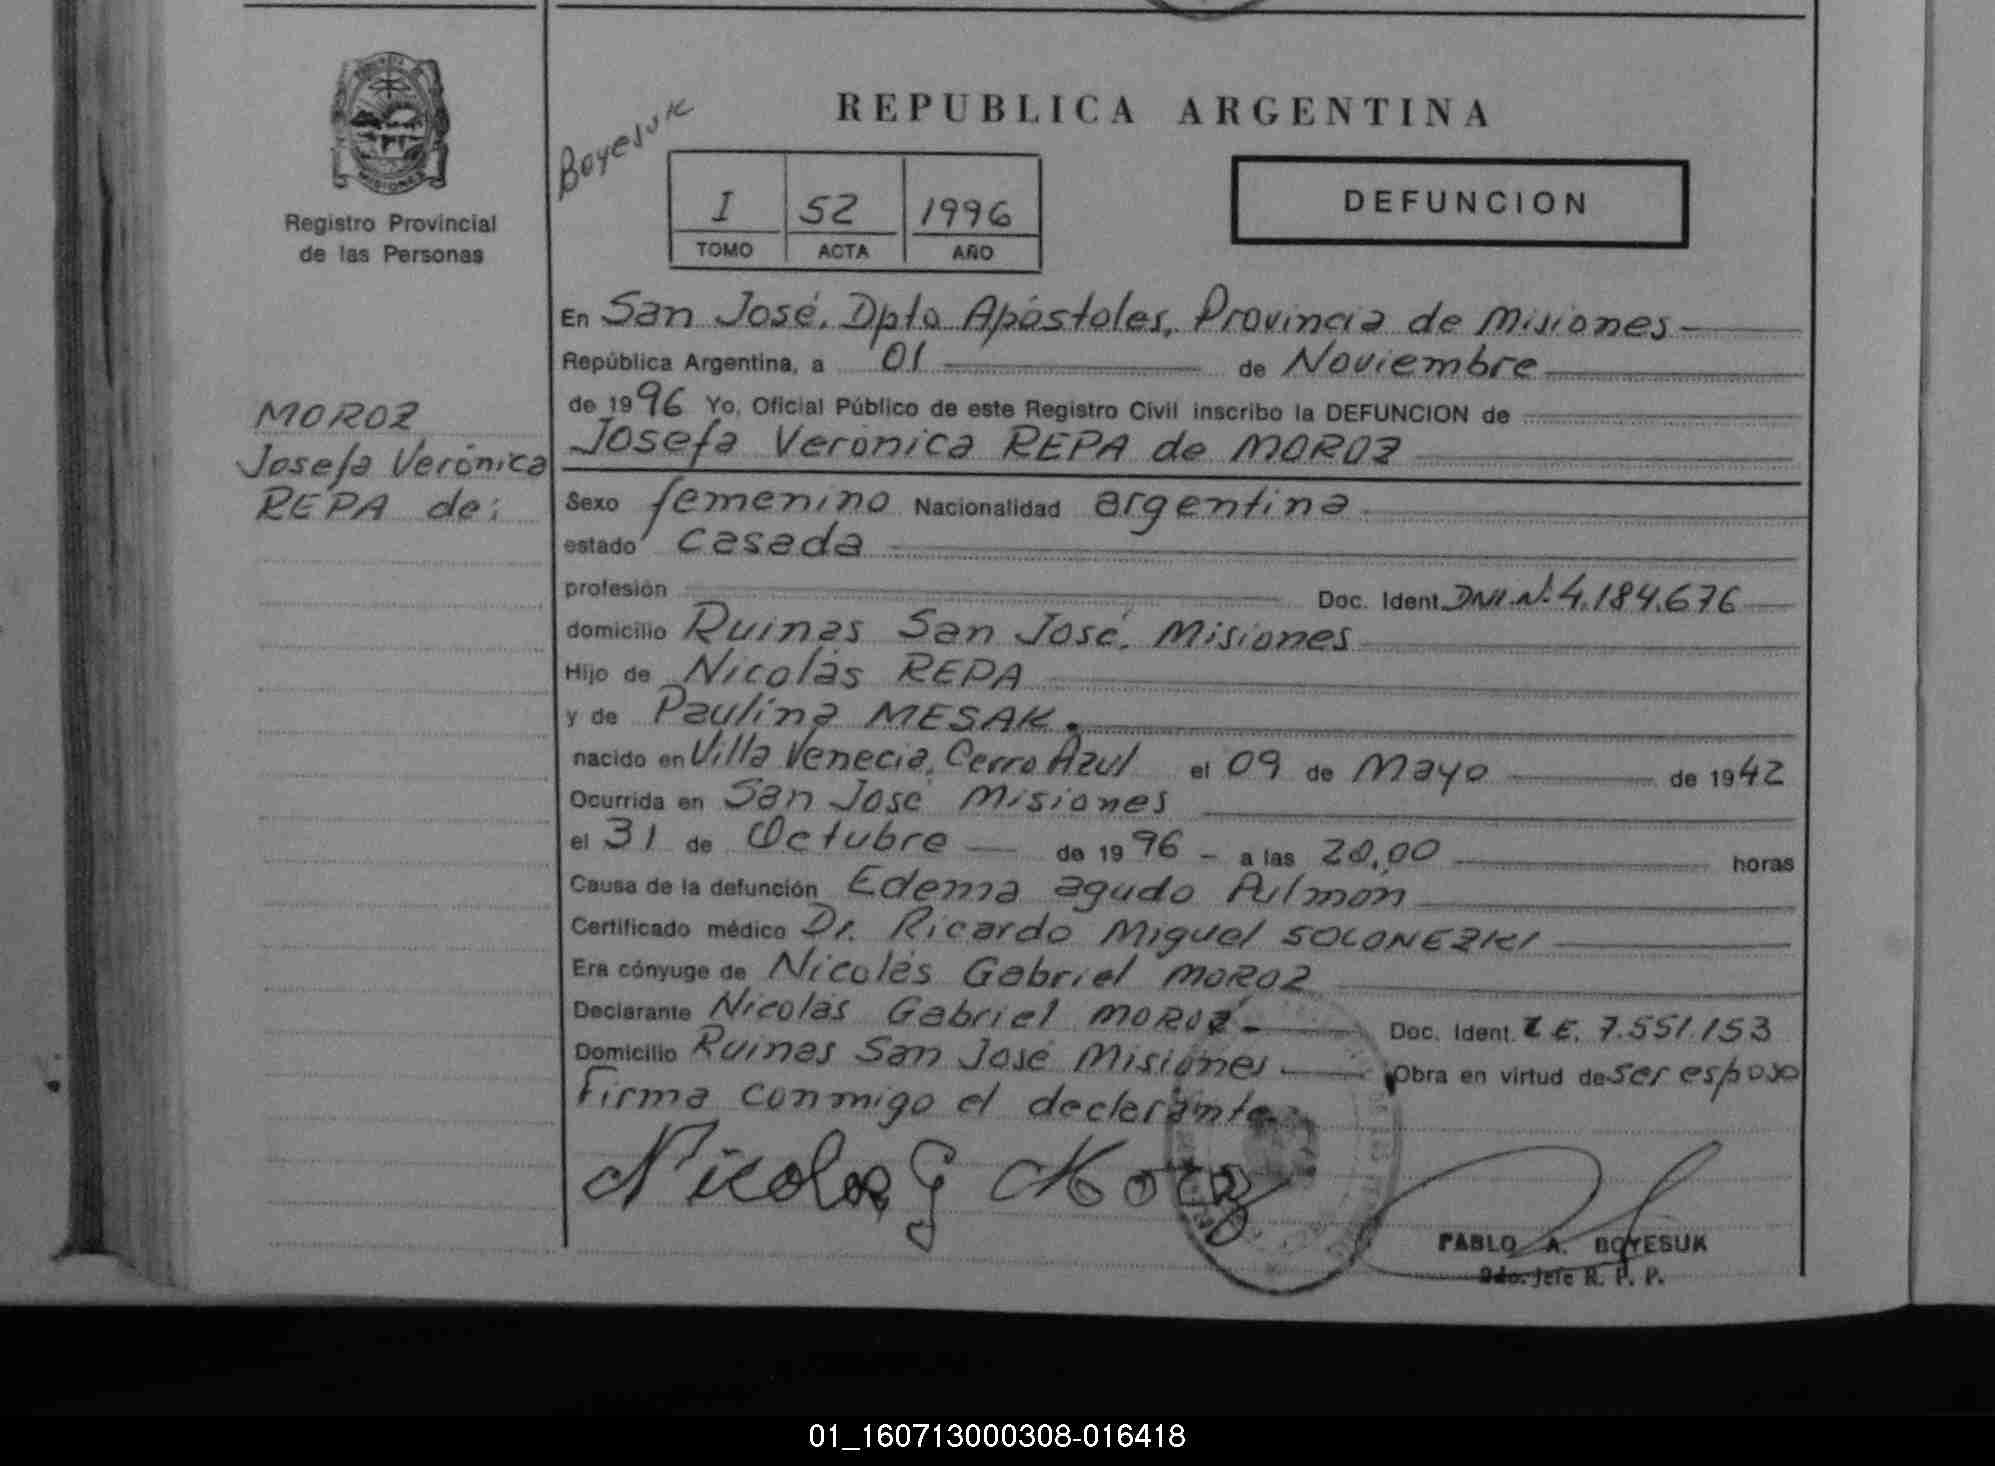 REPUBLICA ARGENTINA
Boyesuk
I 52 1996
TOMO ACTA AÑO
DEFUNCION
MISIONES
Registro Provincial
de las Personas
MOROZ
Josefa Verónica
REPA de:
En San José, Dpto Apóstoles, Provincia de Misiones
República Argentina, a 01 de Noviembre
de 1996 Yo, Oficial Público de este Registro Civil inscribo la DEFUNCION de
Josefa Verónica REPA de MOROZ
Sexo femenino Nacionalidad argentina
estado casada
profesión Doc. Ident. DNI.Nº 4.184.676
domicilio Ruinas San José, Misiones
Hijo de Nicolás REPA
y de Paulina MESAK.
nacido en Villa Venecia, Cerro Azul el 09 de Mayo de 1942
Ocurrida en San José Misiones
el 31 de Octubre de 1996 - a las 20,00 horas
Causa de la defunción Edema agudo Pulmón
Certificado médico Dr. Ricardo Miguel SOLONEZKI
Era cónyuge de Nicolás Gabriel MOROZ
Declarante Nicolás Gabriel MOROZ Doc. Ident. L.E. 7.551.153
Domicilio Ruinas San José Misiones Obra en virtud de ser esposo
Firma conmigo el declarante
Nicolas G Moroz
PABLO A. BOYESUK
2do. Jefe R. P. P.
01_160713000308-016418